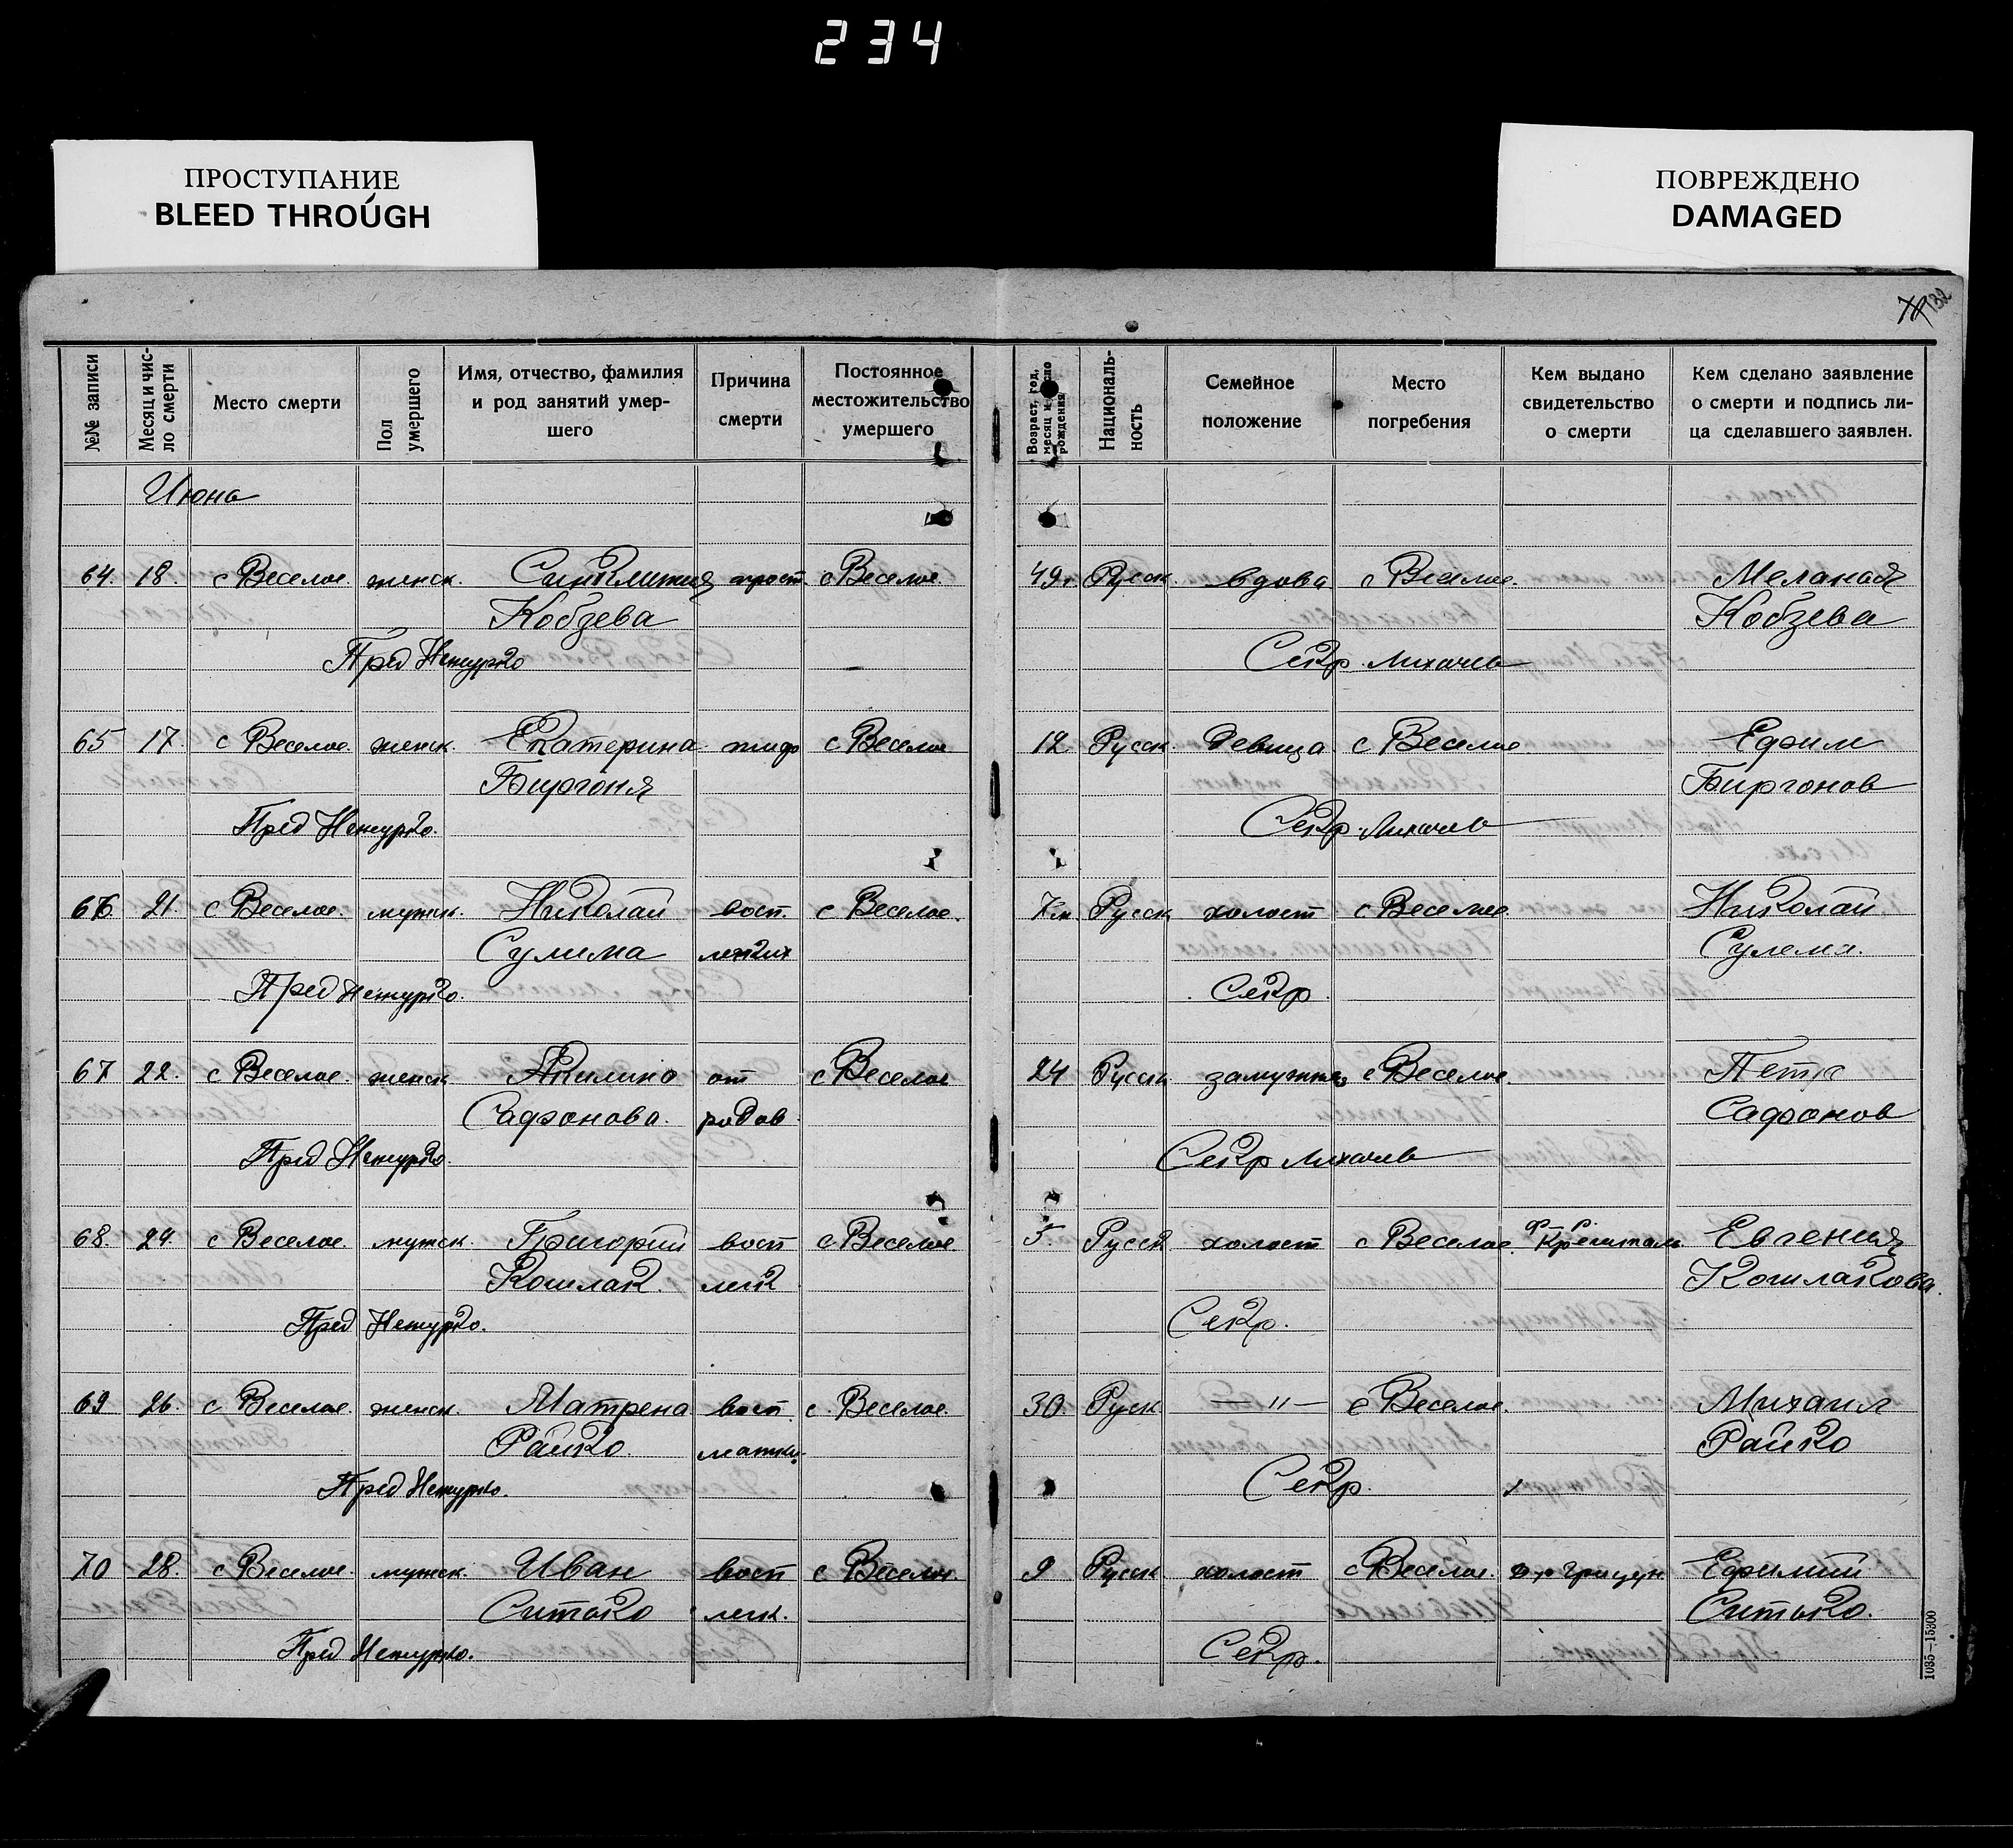 234
ПРОСТУПАНИЕ
BLEED THROUGH
ПОВРЕЖДЕНО
DAMAGED
132
№№ записи | Месяц и число смерти | Место смерти | Пол умершего | Имя, отчество, фамилия и род занятий умершего | Причина смерти | Постоянное местожительство умершего | Возраст, год, месяц и число рождения | Национальность | Семейное положение | Место погребения | Кем выдано свидетельство о смерти | Кем сделано заявление о смерти и подпись лица сделавшего заявлен.
Июнь
64. 18. с Веселое. женск. с Веселое. 49г. Русск. вдова с Веселое. Меланья
Кобзева Кобзева
Пред Нежурко Секр. Лихачев
65 17. с Веселое. женск. Екатерина тиф с Веселое 12. Русск. девица с Веселое. Ефим
Биргоня Биргонов
Пред Нежурко. Секр. Лихачев
66. 21. с Веселое. мужск. Николай восп. с Веселое. 7 м. Русск холост с Веселое. Николай
Сулима легких Сулема.
Пред Нежурко. Секр.
67 22. с Веселое. женск Акилина от с Веселое 24 Русск замужня с Веселое. Петр
Сафонова. родов. Сафонов
Пред Нежурко. Секр Лихачев
68. 24. с Веселое. мужск. Григорий восп с Веселое. 5. Русск холост с Веселое. Евгения
Кошлак. легк Кошлакова.
Пред Нежурко. Секр.
69 26. с Веселое. женск. Матрена восп. с. Веселое. 30. Руск — " — с Веселое. Михаил
Райко. матки. Райко
Пред Нежурко. Секр.
70 28. с Веселое. мужск. Иван восп с Веселое. 9 Русск холост с Веселое. Ефимий
Ситько легк. Ситько.
Пред Нежурко. Секр.
1035—15300